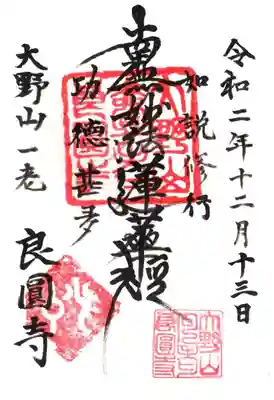 令和二年十二月十三日
如説修行
南無妙法蓮華経
功徳甚多
大野山一老
良圓寺